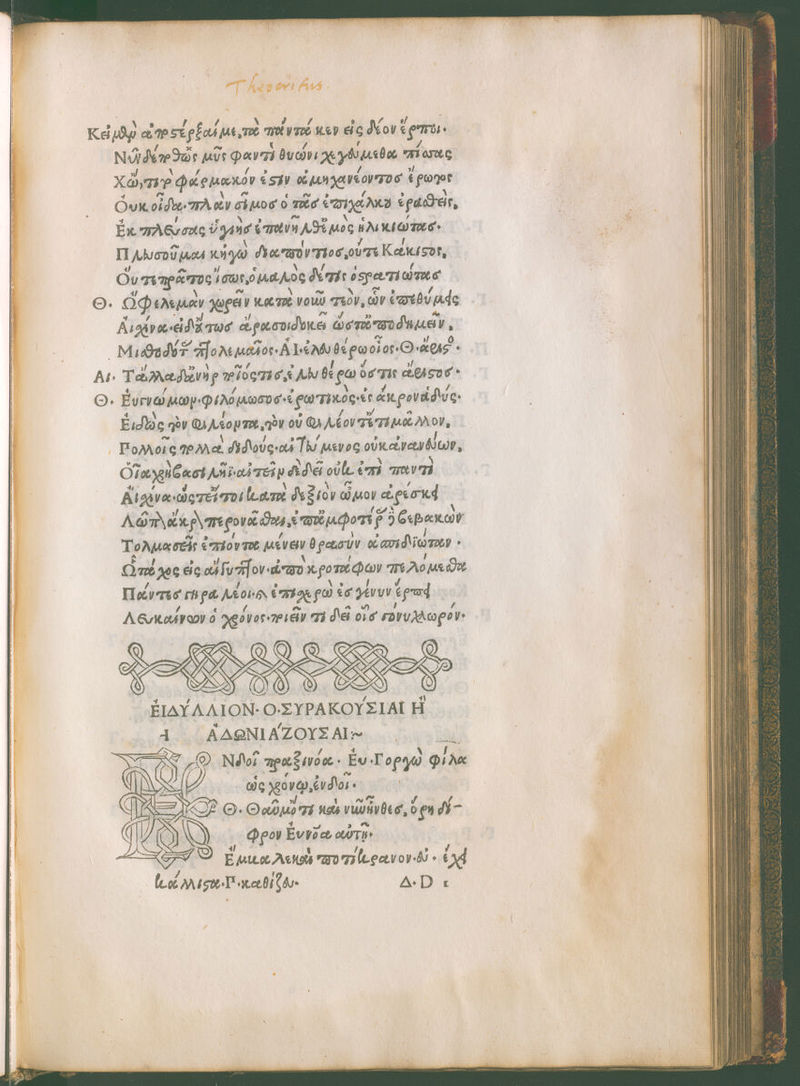 Theocritus
Κεἰ μὲν ἀποστέρξαιμι, τὰ πάντά κεν εἰς δέον ἕρποι·
Νῦν δέ πόθ' ὡς μῦς φαντὶ θυώνιχε γεύμεθα πίσσας
Χὥ, τι περ φάρμακόν ἐστιν ἀμηχανέοντος ἔρωτος
Οὐκ οἶδα· πλὰν σῖμος ὁ τᾶς ἐπιχάλκω ἐραθεὶς,
Ἐκ πλεύσας ὑγιὴς ἐπανῆλθ' ἐμὸς ἡλικιώτας·
Πλευσοῦμαι κἠγὼ διαπόντιος, οὔτε Κάκιστος,
Οὔ τε πρᾶτος ἴσως, ὁμαλὸς δέ τις ὁ στρατιώτας
Θ· Ὤφελε μὰν χωρεῖν κατὰ νοῦν τεὸν, ὧν ἐπεθύμεις
Αἰσχίνα· εἰ δ' οὕτως ἄρα σοι δοκεῖ ὥστ' ἀποδαμεῖν,
Μισθοδότας πτολεμαῖος· ΑΙ· ἐλευθέρω οἷος· Θ· ἄριστος·
Αι· Τἄλλα δ' ἀνὴρ ποῖός τις, ἐλευθέρω ὅς τις ἄριστος·
Θ· Εὐγνώμων· φιλόμωσος· ἐρωτικὸς· ἐς ἄκρον ἁδύς·
Εἰδὼς τὸν φιλέοντα, τὸν οὐ φιλέοντ' ἔτι μᾶλλον,
Πολλοῖς πολλὰ διδούς· αἰτεύμενος οὐκ ἀνανεύων,
Οἷα χρὴ βασιλῆϊ· αἰτεῖν δὲ δεῖ οὐκ ἐπὶ παντὶ
Αἰσχίνα· ὥς τ' εἴ τοι κατὰ δεξιὸν ὦμον ἀρέσκει
Λῶπος ἄκρος περονᾶσθαι, ἐπ' ἀμφοτέροις δὲ βεβακὼν
Τολμασεῖς ἐπιόντα μένειν θρασὺν ἀσπιδιώταν·
Ὧ τάχος εἰς αἴγυπτον· ἀπὸ κροτάφων πελόμεσθα
Πάντες γηραλέοι· καὶ ἐπισχερὼ ἐς γένυν ἕρπει
Λευκαίνων ὁ χρόνος· ποιεῖν τι δεῖ οἷς γόνυ χλωρόν·
ἘΙΔΎΛΛΙΟΝ· Ο· ΣΥΡΑΚΟΎΣΙΑΙ Ἢ
ἈΔΩΝΙΆΖΟΥΣΑΙ:~
ΕΝδοῖ πραξινόα· Ευ· Γοργὼ φίλα
ὡς χρόνῳ, ἐνδοῖ·
Θ· Θαῦμ' ὅτι καὶ νῦν ἦνθες, ὅρη δί-
φρον Εὐνόα αὐτῇ·
Ἔμβαλε καὶ ποτίκρανον· ευ· ἔχει
κάλλιστα· Γ· καθίζευ· Δ·D ι